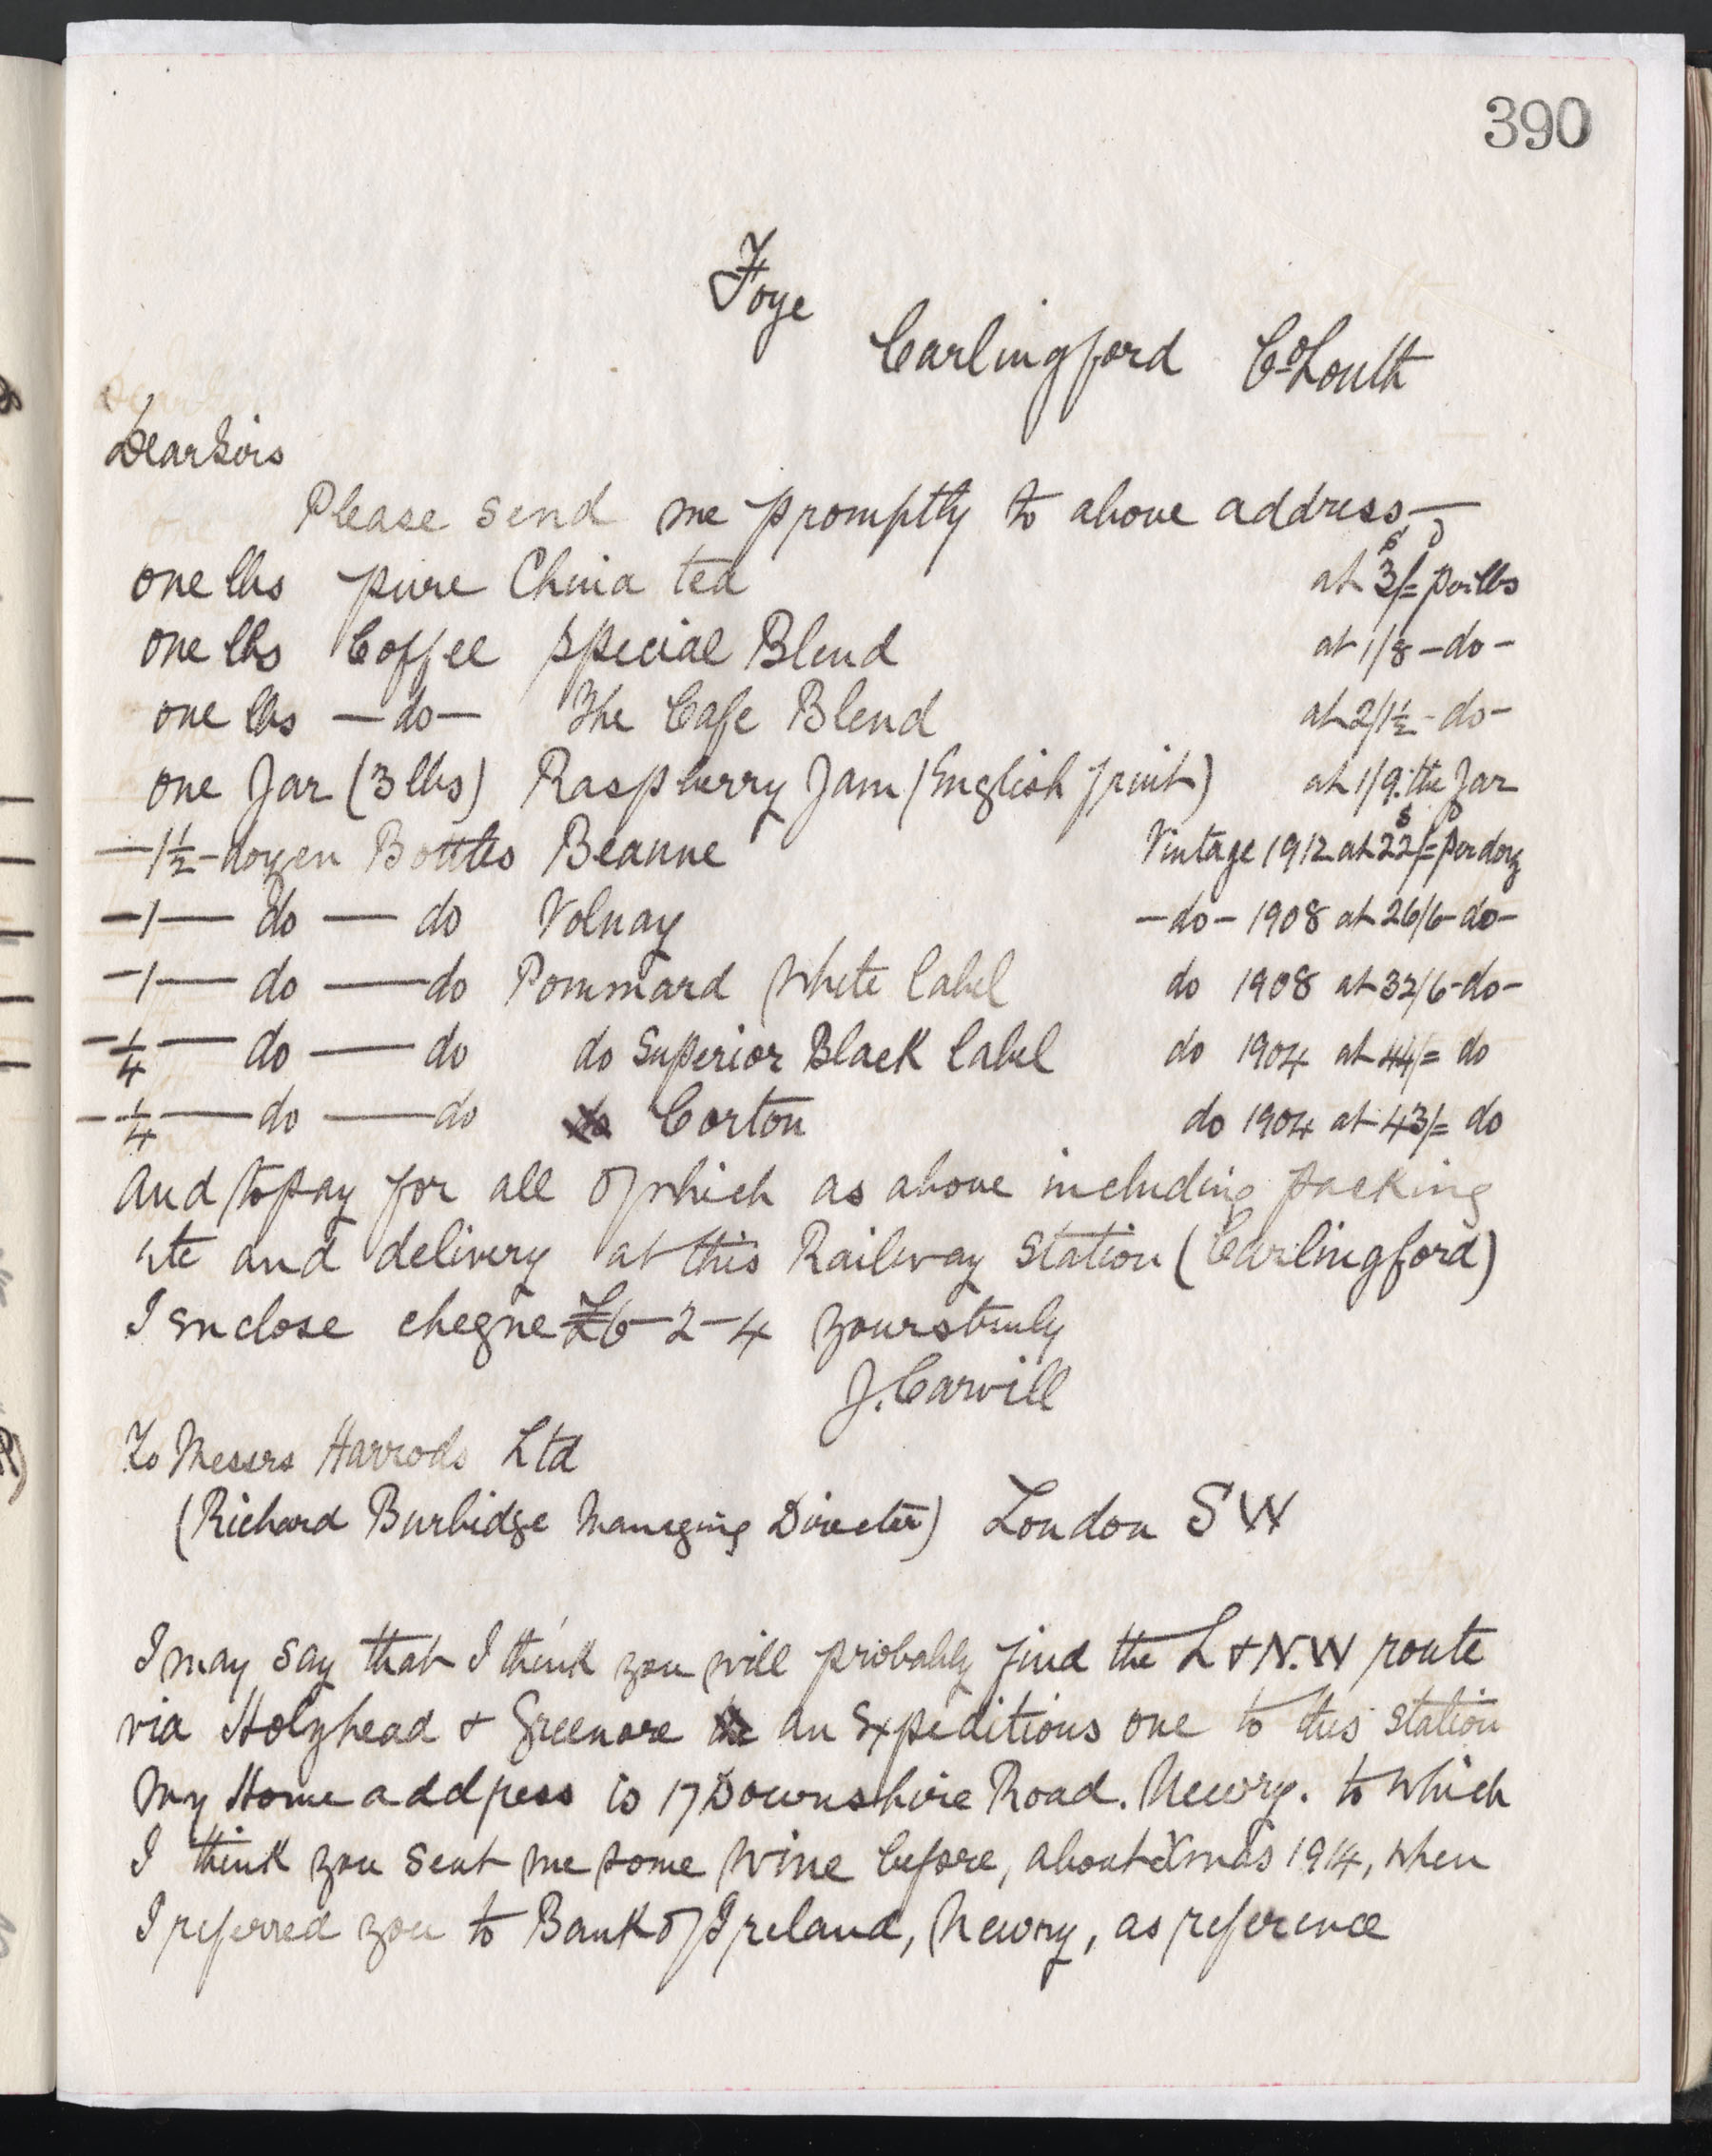 390
Foye
Carlingford Co Louth
Dear Sirs
Please send me promptly to above address,—
one lbs pure China tea at 3s/= per lbs
one lbs Coffee special Blend at 1/8 -do-
one lbs -do- The Cafe Blend at 2/1½ -do-
one Jar (3 lbs) Raspberry Jam (English fruit) at 1/9. the Jar
-1½- dozen Bottles Beaune Vintage 1912 at 22s/= per doz
-1- do - do Volnay -do- 1908 at 26/6 -do-
-1- do - do Pommard White label do 1908 at 32/6 -do-
-¼- do - do do Superior Black label do 1904 at 44/= do
-¼- do - do do Corton do 1904 at 43/= do
And to pay for all of which as above including packing
etc and delivery at this Railway Station (Carlingford)
I enclose cheque £6-2-4 yours truly
J. Carvill
To Messrs Harrods Ltd
(Richard Burbidge Managing Director) London SW
I may say that I think you will probably find the L & N.W route
via Holyhead & Greenore an expeditious one to this station
My Home address is 17 Downshire Road. Newry. to which
I think you sent me some wine before, about Xmas 1914, when
I referred you to Bank of Ireland, Newry, as reference